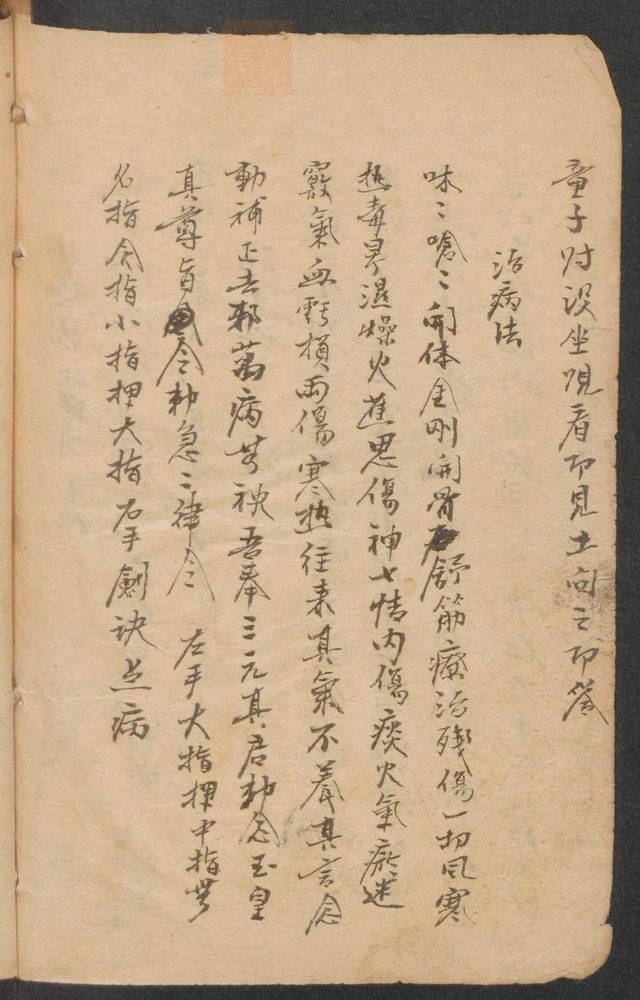 童子对设坐咒看即見土向之即答
治病法
味〻唵〻開体金剛開骨舒筋療治殘傷一切風寒
热毒暑濕燥火蕉思傷神七情内傷痰火氣瘀迷
竅氣血虧損两傷寒热往来真氣不養真言念
動補正去邪萬病其袂吾奉三元真君勅令玉皇
真尊旨令勅急〻律令 左手大指押中指無
名指令指小指押大指右手劍诀点病